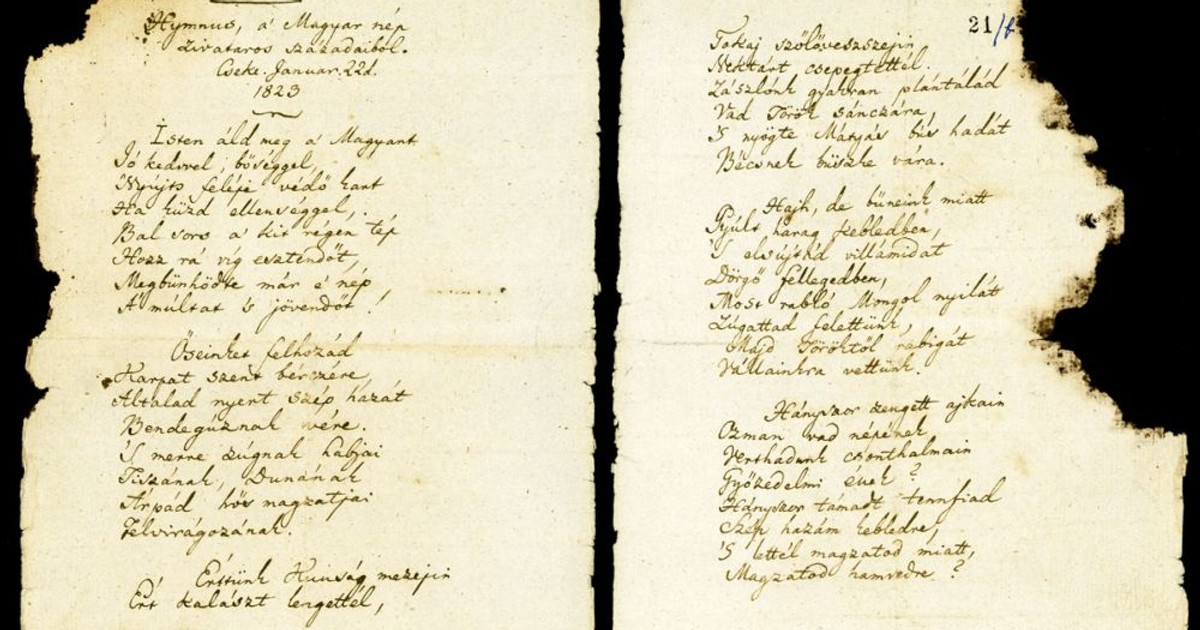 Hymnus, a' Magyar nép
Zivataros századaiból.
Cseke. Januar. 22d.
1823
Isten áld meg a' Magyart
Jó kedvvel, bőséggel,
Nyújts feléje védő kart
Ha küzd ellenséggel,
Bal sors a' kit régen tép
Hozz rá víg esztendőt,
Megbünhödte már e' nép
A' múltat 's jövendőt!
Őseinket felhozád
Kárpát szent bérczére
Általad nyert szép hazát
Bendegúznak vére.
'S merre zúgnak habjai
Tiszának, Dunának
Árpád hős magzatjai
Felvirágozának.
Értünk Kunság mezején
Ért kalászt lengettél,
21/b
Tokaj szőlővesszejin
Nektárt csepegtettél.
Zászlónk gyakran plántálád
Vad Török sánczára,
'S nyögte Mátyás bús hadát
Bécsnek büszke vára.
Hajh, de bűneink miatt
Gyúlt harag kebledben,
'S elsújtád villámidat
Dörgő fellegedben,
Most rabló Mongol nyilát
Zúgattad felettünk,
Majd Töröktől rabigát
Vállainkra vettünk.
Hányszor zengett ajkain
Ozman vad népének
Verthadunk csonthalmain
Győzedelmi ének?
Hányszor támadt tennfiad
Szép hazám kebledre,
'S lettél magzatod miatt,
Magzatod hamvedre?